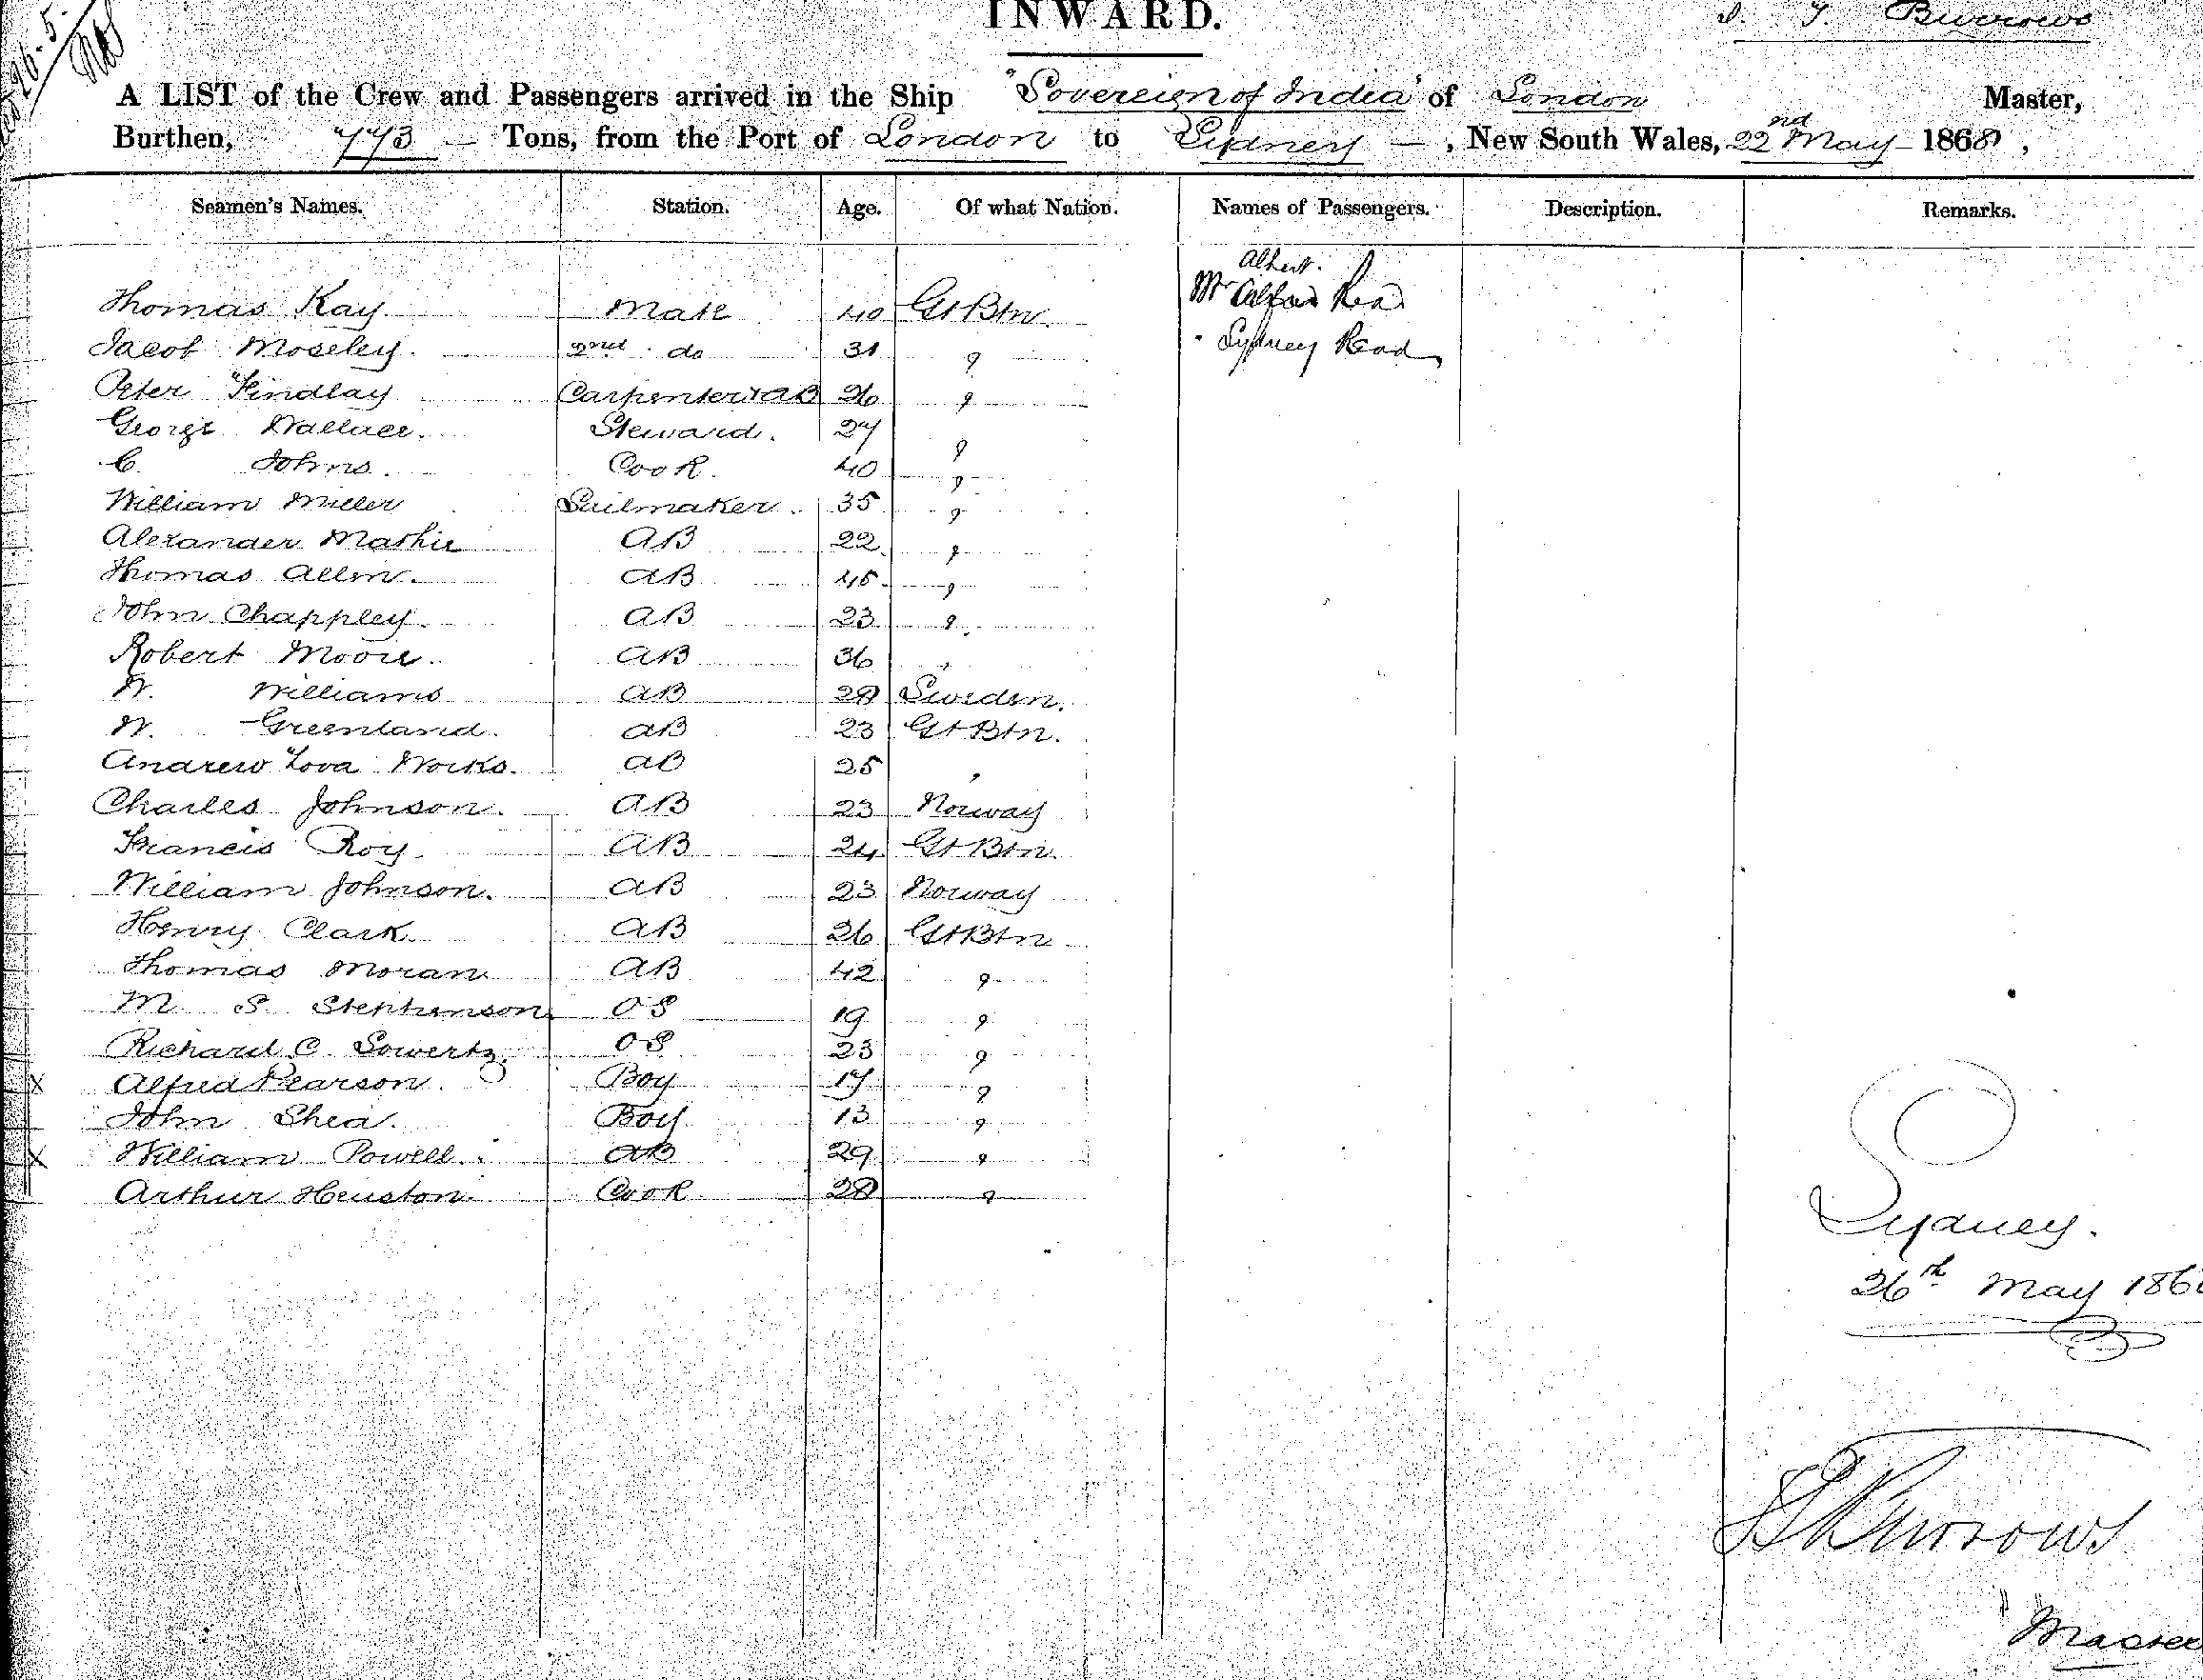 INWARD.
Burrows
A LIST of the Crew and Passengers arrived in the Ship "Sovereign of India" of London Master,
Burthen, 773 Tons, from the Port of London to Sydney, New South Wales, 22nd May 1868,
Seamen's Names. Station. Age. Of what Nation. Names of Passengers. Description. Remarks.
Albert.
Thomas Kay Mate 40 Gt Btn. Mr Read
Jacob Moseley. 2nd do 31 " " Sydney Read
Peter Findlay Carpenter & AB 26 "
George Wallace. Steward. 27 "
C. Johns. Cook. 40 "
William Miller Sailmaker. 35 "
Alexander Mathie AB 22 "
Thomas Allen. AB 45 "
John Chappley. AB 23 "
Robert Moore. AB 36 "
W. Williams AB 28 Sweden.
W. Greenland. AB 23 Gt Btn.
Andrew AB 25 "
Charles Johnson. AB 23 Norway
Francis Roy AB 24 Gt Btn.
William Johnson. AB 23 Norway
Henry Clark. AB 26 Gt Btn
Thomas Moran AB 42 "
M S Stephenson OS 19 "
Richard C OS 23 "
x Alfred Pearson. Boy 17 "
John Shea. Boy 13 "
x William Powell. AB 29 "
Arthur Heuston. Cook 28 "
Sydney.
26th May 186
Burrows
Master